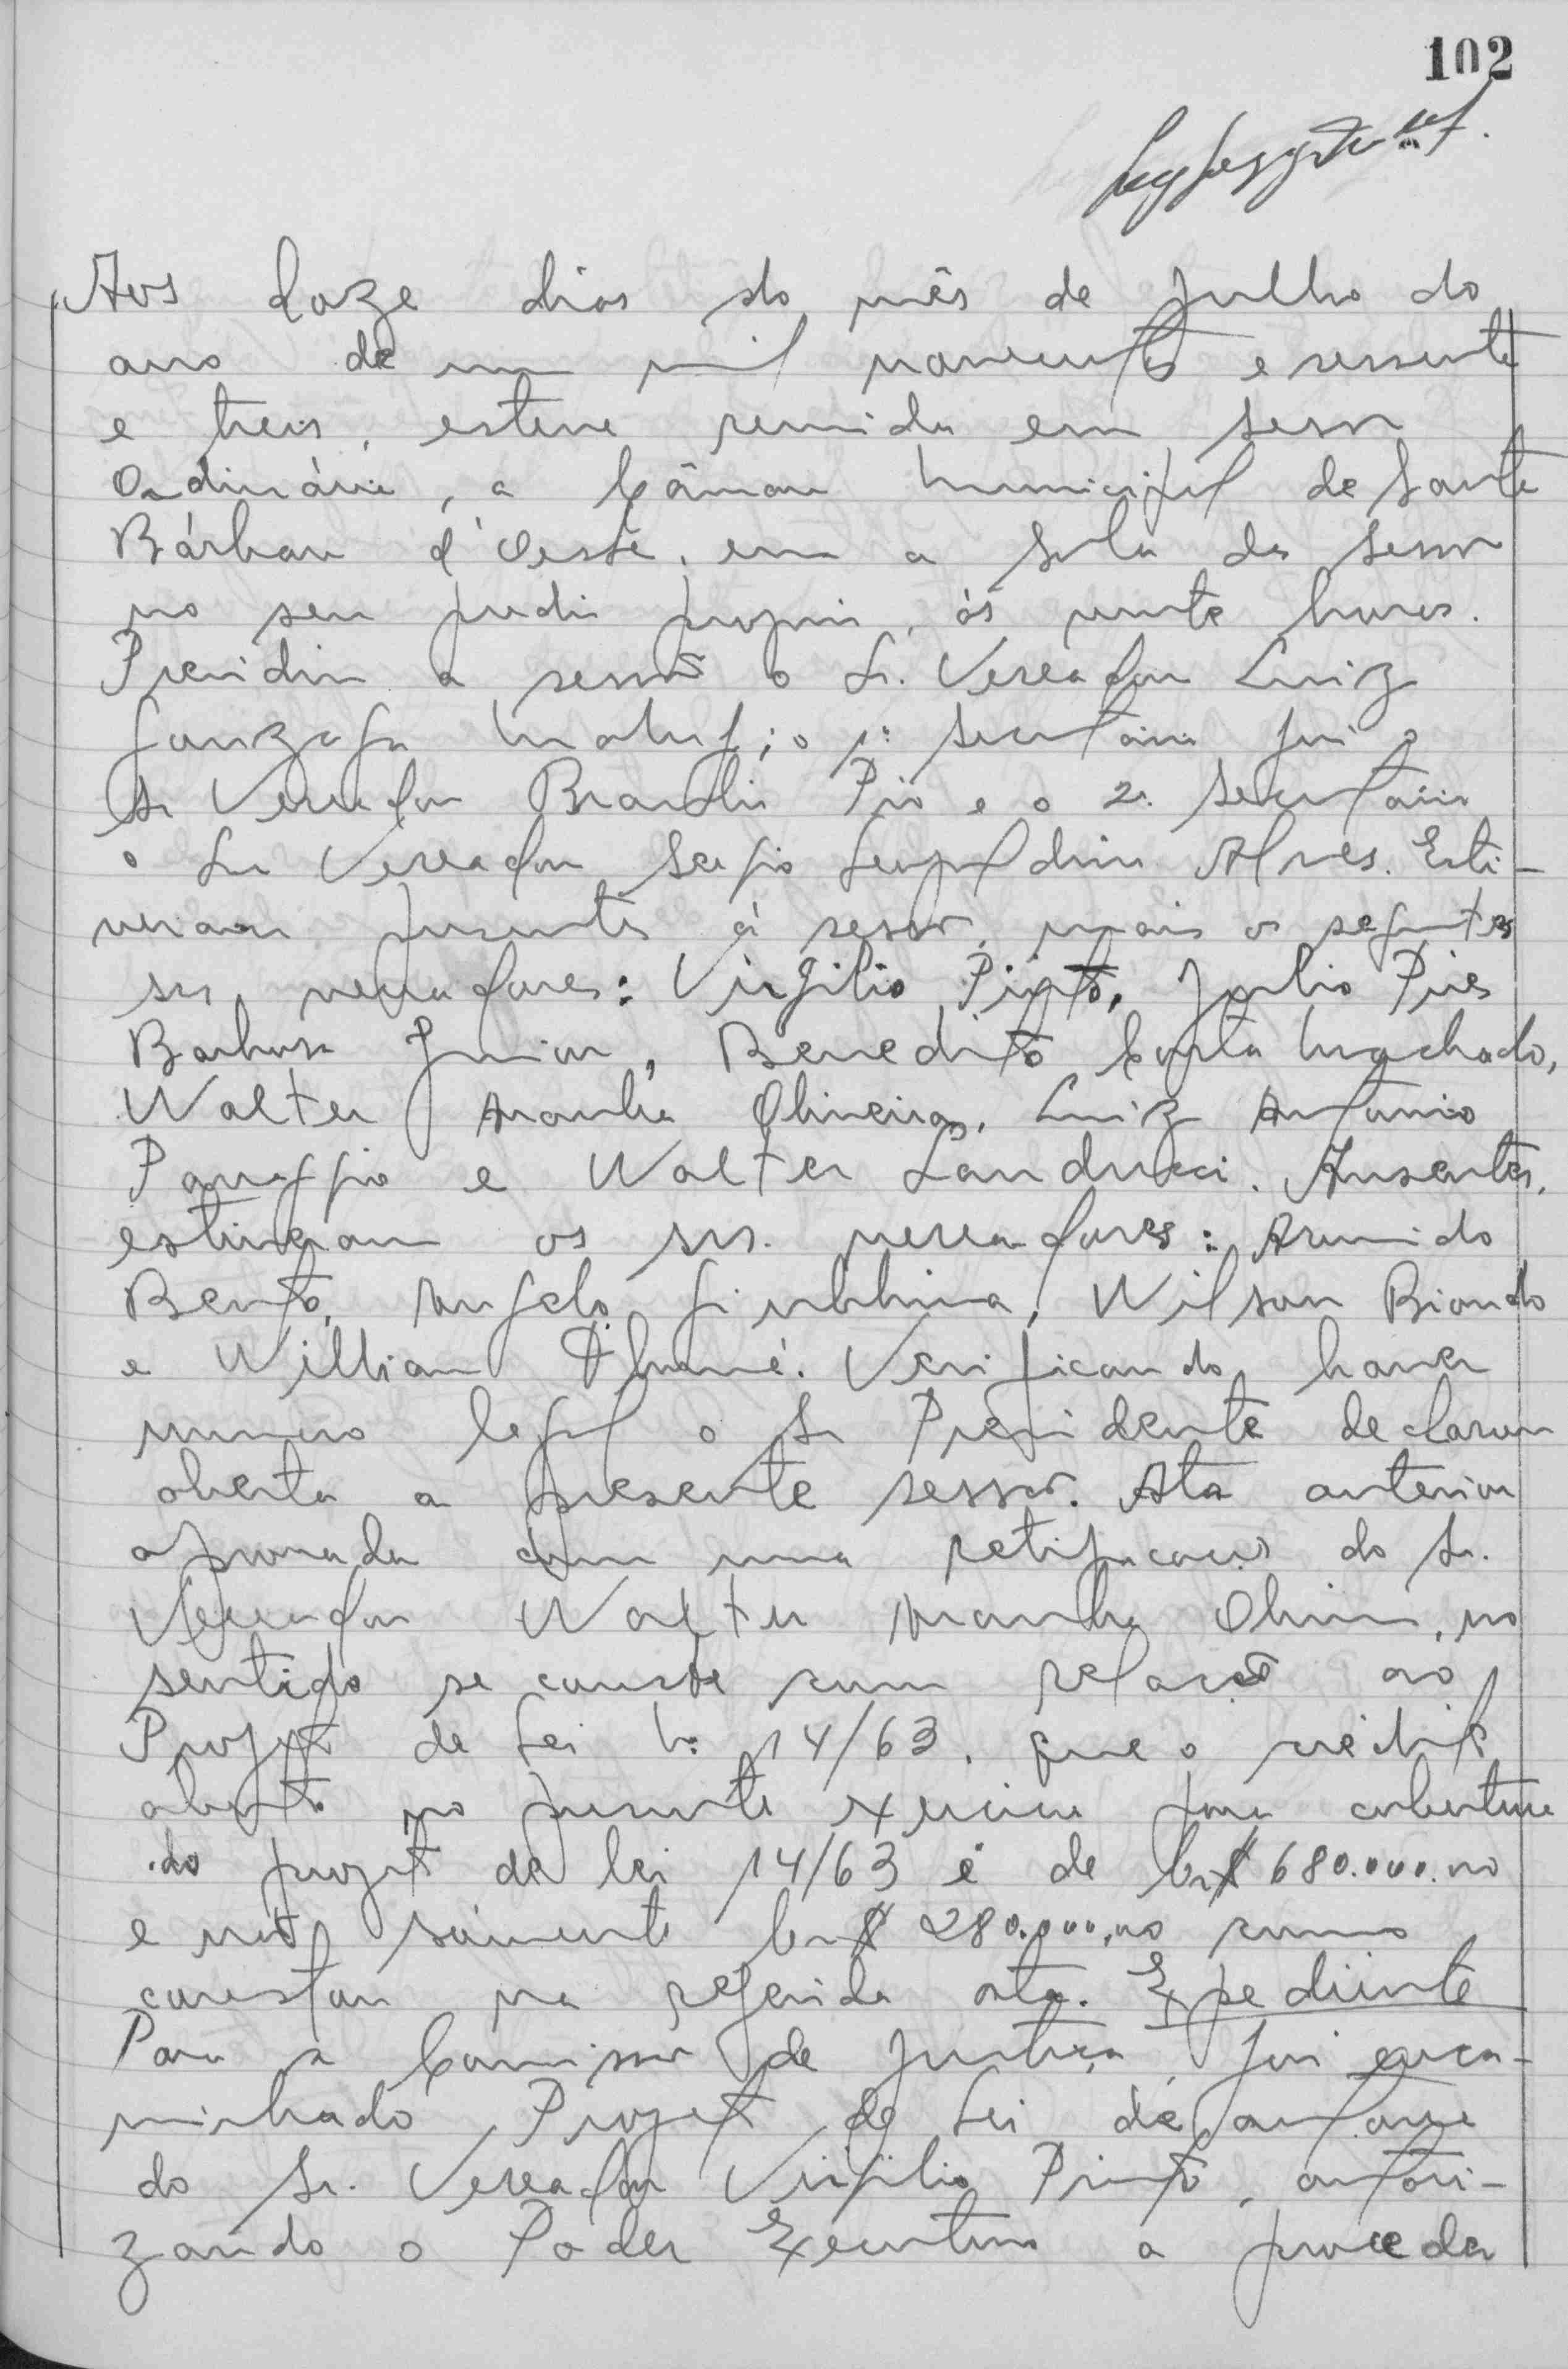 102
Aos doze dias do mês de julho do
ano de um mil novecentos e sessenta
e treis, esteve reunida em sessão
Ordinária, a Câmara Municipal de Santa
Bárbara d'Oeste, em a sala das sessões
no seu predio proprio, ás vinte horas.
Presidiu a sessão o Sr. Vereador Luiz
Gonzaga ; o 1º secretário foi o
Sr Vereador Braulio Pio e o 2º secretário
o Sr Vereador Sergio Leopoldino Alves. Esti-
veram presentes á sessão, mais os seguintes
srs vereadores: Virgilio Pinto, Julio Pires
Barbosa Junior, Benedito Costa Machado,
Walter Aranha Oliveira, Luiz Antonio
Panaggio e Walter Landucci. Ausentes,
estiveram os srs. vereadores: Arnaldo
Bento, Angelo Giubbina, Wilson Biondo
e Willian . Verificando haver
numero legal o Sr Presidente declarou
aberta a presente sessão. Ata anterior
aprovada com uma retificação do Sr.
Vereador Walter Aranha Oliveira, no
sentido se conste com relação ao
Projeto de Lei Nº 14/63, que o crédito
aberto no presente exercicio para cobertura
do projeto de lei 14/63 é de Cr$ 680.000,00
e não sómente Cr$ 280.000,00 como
constou na referida ata. Expediente
Para a Comissão de Justiça, foi enca-
minhado Projeto de Lei de autoria
do Sr. Vereador Virgilio Pinto, autori-
zando o Poder Executivo a proceder